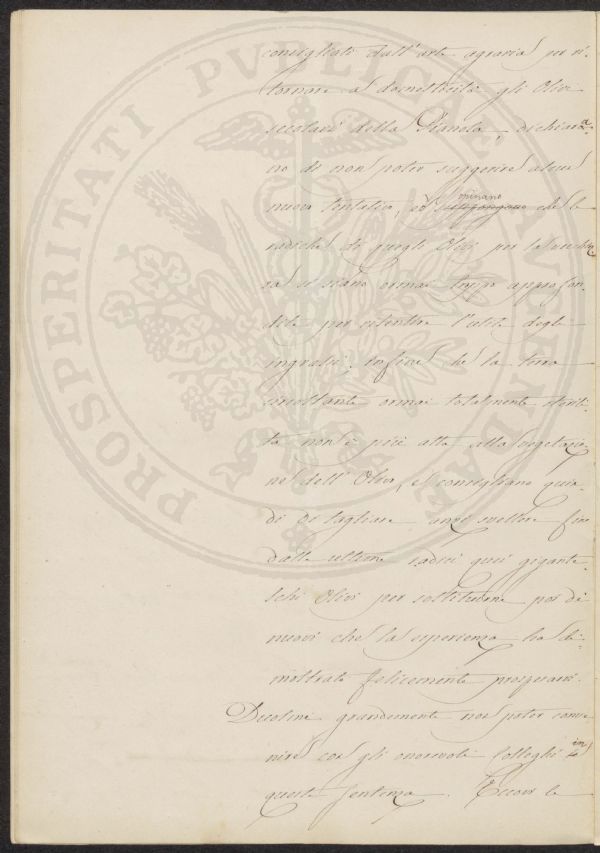 consigliati dall'arte agraria per ri-
tornare a domesticità gli Olivi
secolari della Pianola, dichiara-
no di non poter suggerire alcun
nuovo tentativo, ed opinano che le
radici di quegli Olivi per la vecchiez-
za si siano ormai troppo approfon-
dite per risentire l'utile degli
ingrassi; infine che la terra
circostante ormai totalmente sterili-
ta non è più atta alla vegetazio-
ne dell'Olivo, e consigliano quin-
di di tagliare anzi svellere fin
dalle ultime radici quei gigante-
schi Olivi per sostituirne poi di
nuovi che la esperienza ha di-
mostrato felicemente prosperare.
grandemente non poter conve-
nire con gli onorevoli Colleghi in
questa sentenza. Eccovi le
PROSPERITATI PUBLICAE AUGENDAE